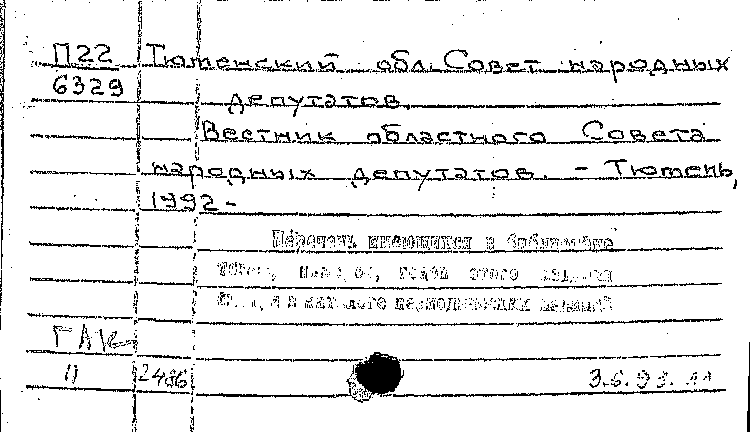 П22 Тюменский обл. Совет народных
6329 депутатов.
Вестник областного Совета
народных депутатов. – Тюмень,
1992 –
Перечень имеющихся в библиотеке
годов этого издания
периодических изданий
ГАК
11 2486 3.6.93.